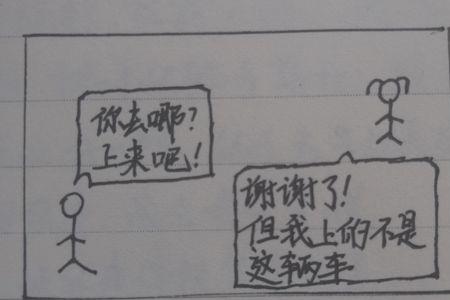 你去哪?
上来吧!
谢谢了!
但我上的不是
这辆车